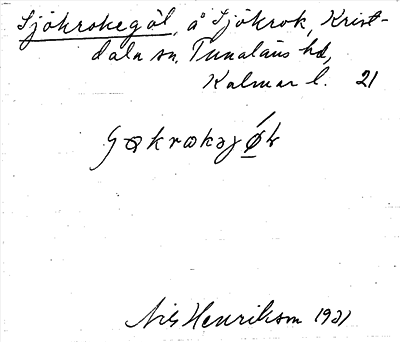 Sjökrokegöl, å Sjökrok, Krist-
dala sn, Tunaläns hd,
Kalmar l. 21
Nils Henrikson 1921